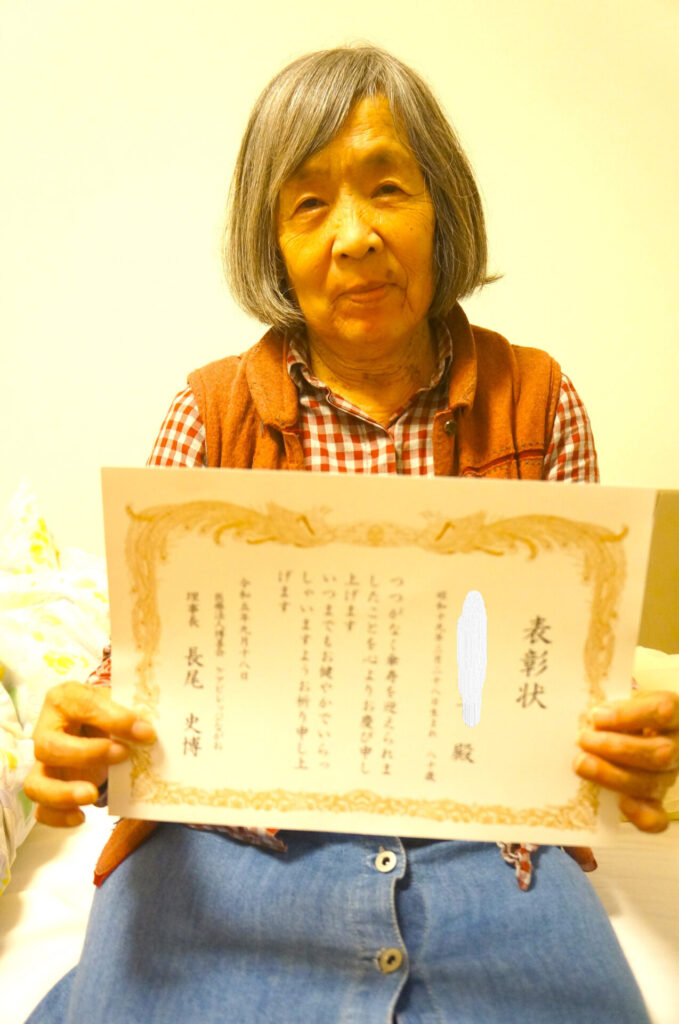 表彰状
殿
昭和十九年二月二十八日生まれ 八十歳
つつがなく傘寿を迎えられま
したことを心よりお慶び申し
上げます
いつまでもお健やかでいらっ
しゃいますようお祈り申し上
げます
令和五年九月十八日
医療法人
理事長 長尾 史博